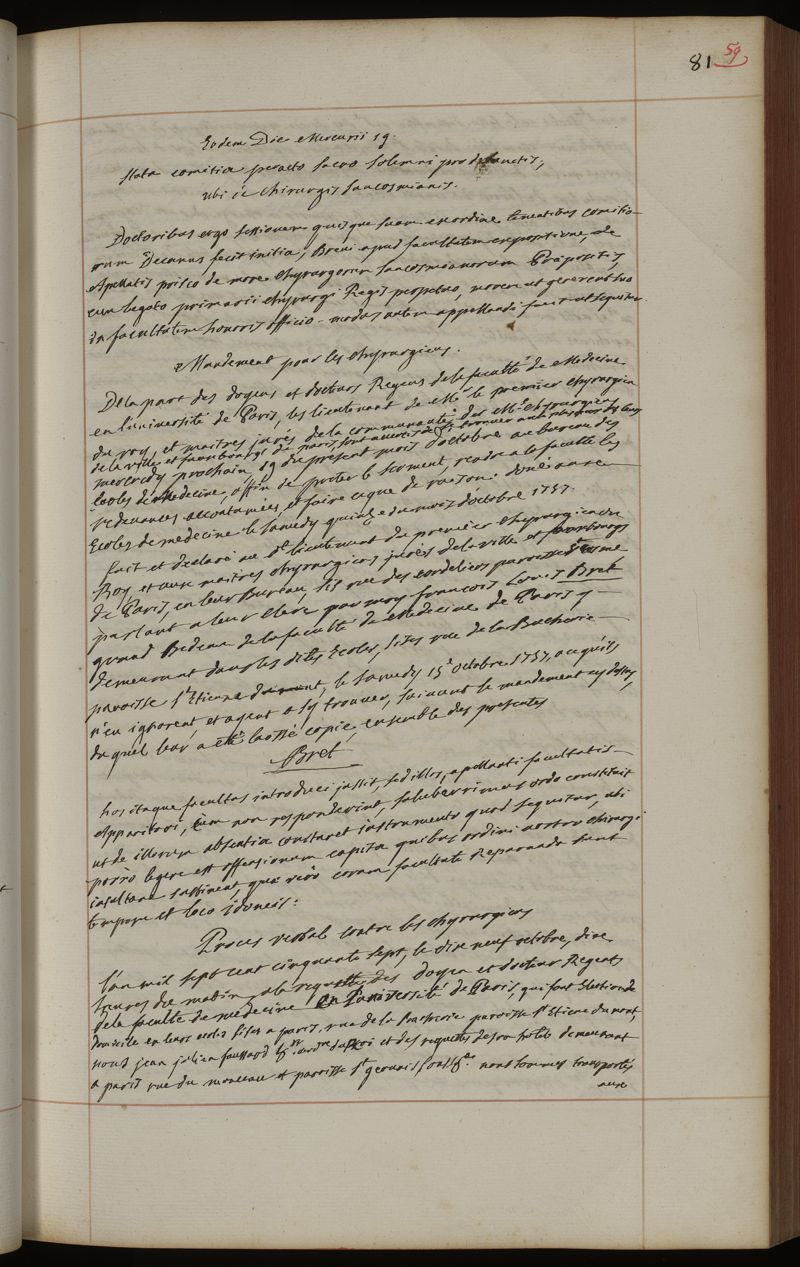 81 59
Eodem Die Mercurii 19.
stata comitia peracto sacro solemni pro defunctis,
ubi de Chirurgis sancosmianis.
Doctoribus ergo sessionem quisque suam ex ordine tenentibus comitio-
rum Decanus fecit initia, Brevi apud facultatem expositione, de
Apellatis prisco de more Chyrurgorum sancosmianorum Præpositis,
cum legato primarii chyrurgi Regis perpetuo, novem ut gererent suo
in facultatem honoris officio - modus autem appellandi fuit ut sequitur.
Mandement pour les chyrurgiens.
De la part des doyens et docteurs Regens de la faculté de Medecine
en l'université de Paris, les lieutenant de Mr. le premier chyrurgien
du roy, et maitres jurés de la communauté des Mes. chyrurgiens
de la ville et fauxbourgs de paris, sont avertis de se trouver
mercredy prochain 19 du present mois d'octobre au bureau des
Ecoles de Medecine, affin de preter le serment, rendre a la faculté les
redevances accoutumées, et faire ce que de raison. donné aux
Ecoles de medecine le samedy quinze du mois d'octobre 1757.
fait et declaré au dt. lieutenant du premier chyrurgien du
Roy, et aux maitres chyrurgiens jurés de la ville et fauxbourgs
de Paris, en leur Bureau, sis rue des cordeliers paroisse St. Cosme
parlant a leur Clerc par moy françois Louis Bret
grand Bedeau de la faculté de Medecine de Paris y
demeurant dans les dittes Ecoles, sises rue de la Bucherie
paroisse St. Etienne dumont, le samedy 15e. Octobre 1757, a ce qu'ils
n'en ignorent, et ayent a s'y trouver, suivant le mandement cy dessus,
du quel leur a eté laissé copie, ensemble des presentes
Bret
hos itaque facultas introduci jussit, sed illos, apellanti facultatis
Apparitori, cum non responderint, saluberrimus ordo constituit
ut de illorum absentia constaret instrumento quod sequitur, ubi
porro legere est offensionum capita quibus ordini nostro chirurgi
insultare sustineat, quæ vero coram facultate reparanda sunt
tempore et loco idoneis:
Proces verbal contre les chyrurgiens
l'an mil sept cent cinquante sept, le dix neuf octobre, dix
heures du matin, a la requette des doyen et docteurs Regents
de la faculté de medecine en l'université de Paris, qui font Election de
domicile en leurs ecoles sises a paris, rue de la Bucherie paroisse St. Etiene du mont,
nous jean julien et des requettes de son hotel demeurant
a paris rue du monceau et paroisse St. gervais soussigné. nous sommes transportés
aux